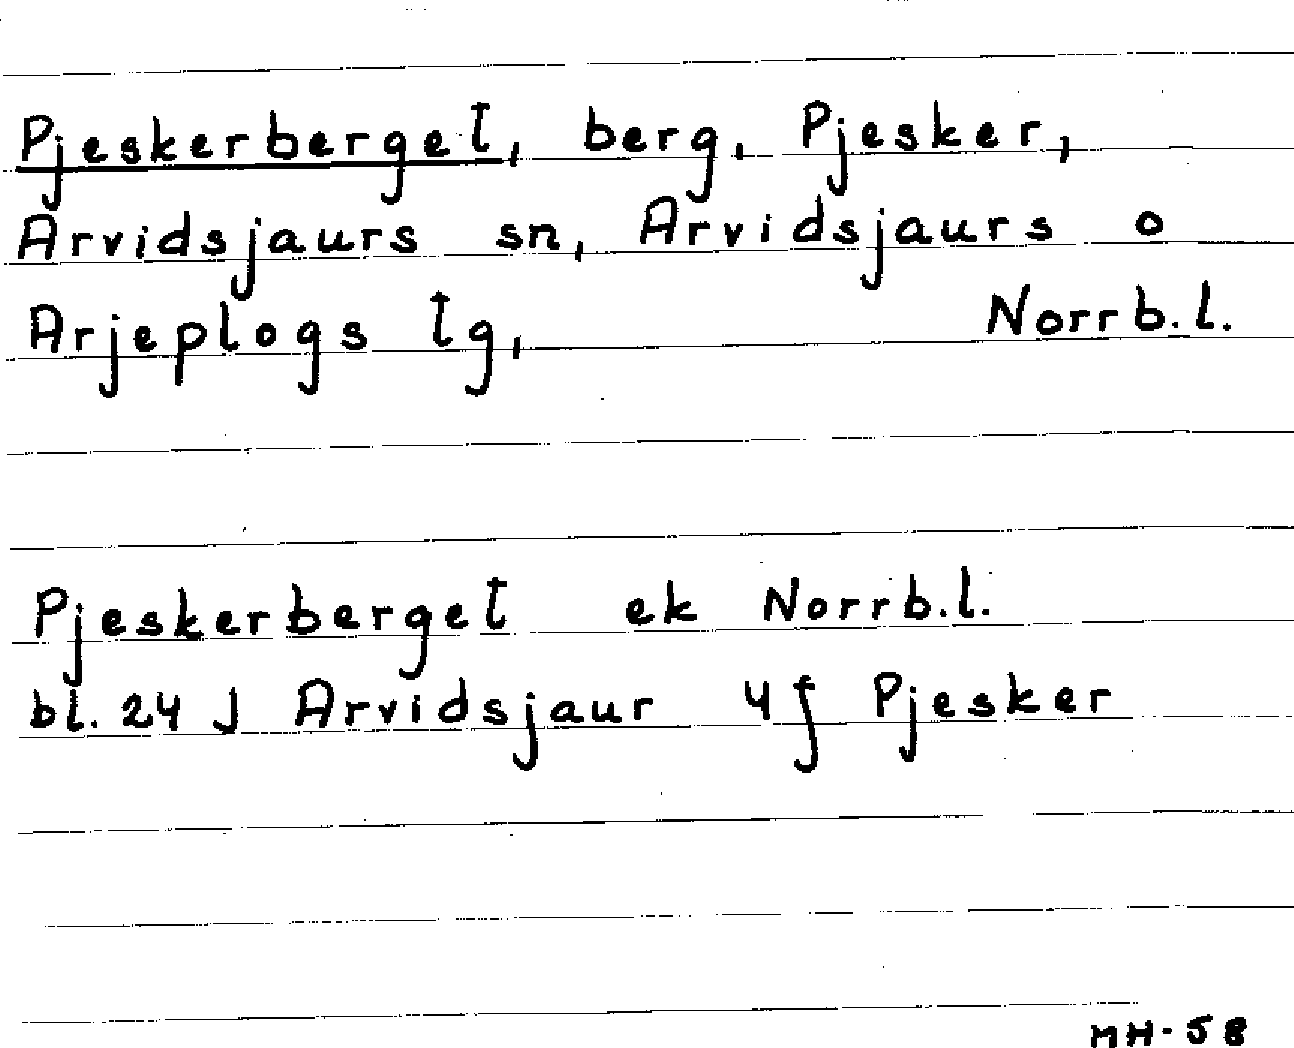 Pjeskerberget, berg, Pjesker,
Arvidsjaurs sn, Arvidsjaurs o
Arjeplogs tg, Norrb.l.
Pjeskerberget ek Norrb.l.
bl. 24 J Arvidsjaur 4f Pjesker
MH-58